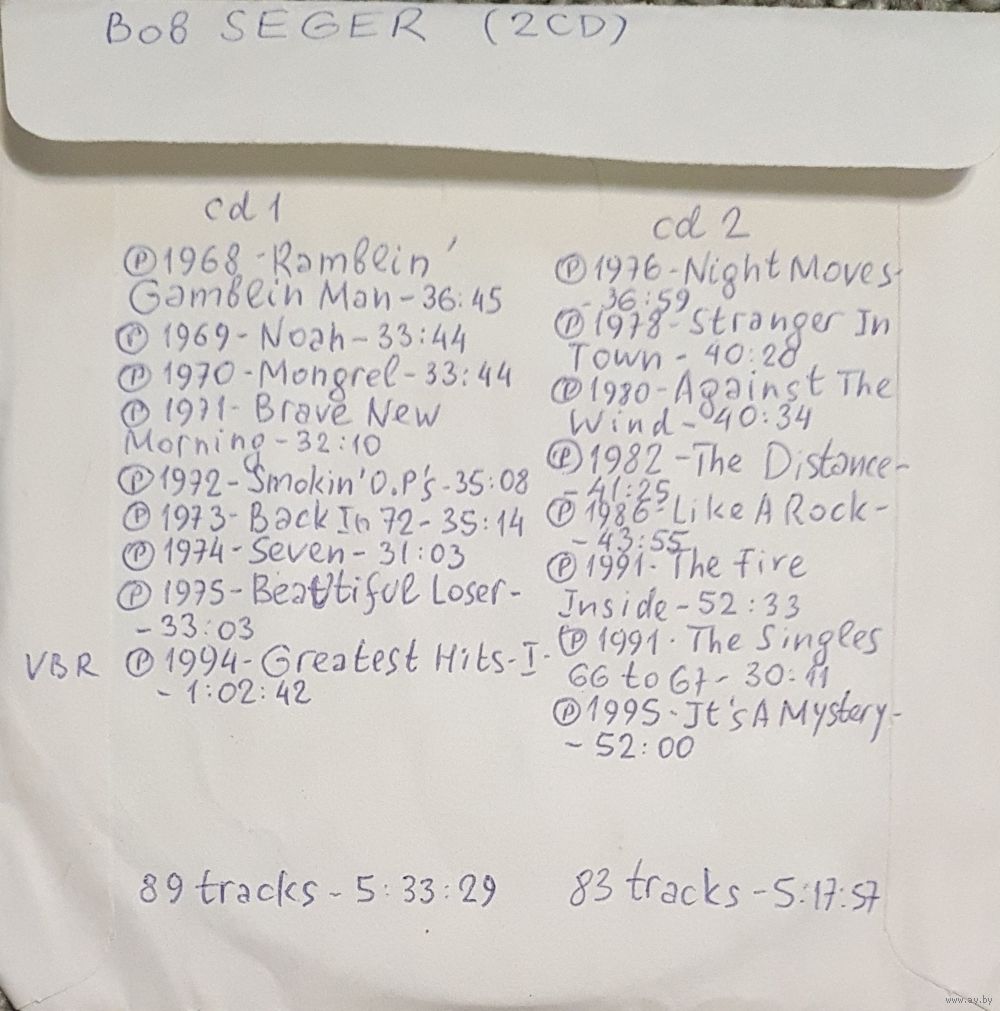 Bob SEGER (2CD)
cd 1
Ⓟ 1968 - Ramblin'
Gamblin Man - 36:45
Ⓟ 1969 - Noah - 33:44
Ⓟ 1970 - Mongrel - 33:44
Ⓟ 1971 - Brave New
Morning - 32:10
Ⓟ 1972 - Smokin' O.P's - 35:08
Ⓟ 1973 - Back In 72 - 35:14
Ⓟ 1974 - Seven - 31:03
Ⓟ 1975 - Beautiful Loser -
- 33:03
VBR Ⓟ 1994 - Greatest Hits - I -
- 1:02:42
89 tracks - 5:33:29
cd 2
Ⓟ 1976 - Night Moves -
- 36:59
Ⓟ 1978 - Stranger In
Town - 40:28
Ⓟ 1980 - Against The
Wind - 40:34
Ⓟ 1982 - The Distance -
- 41:25
Ⓟ 1986 - Like A Rock -
- 43:55
Ⓟ 1991 - The Fire
Inside - 52:33
Ⓟ 1991 - The Singles
66 to 67 - 30:11
Ⓟ 1995 - It's A Mystery -
- 52:00
83 tracks - 5:17:57
www.ay.by